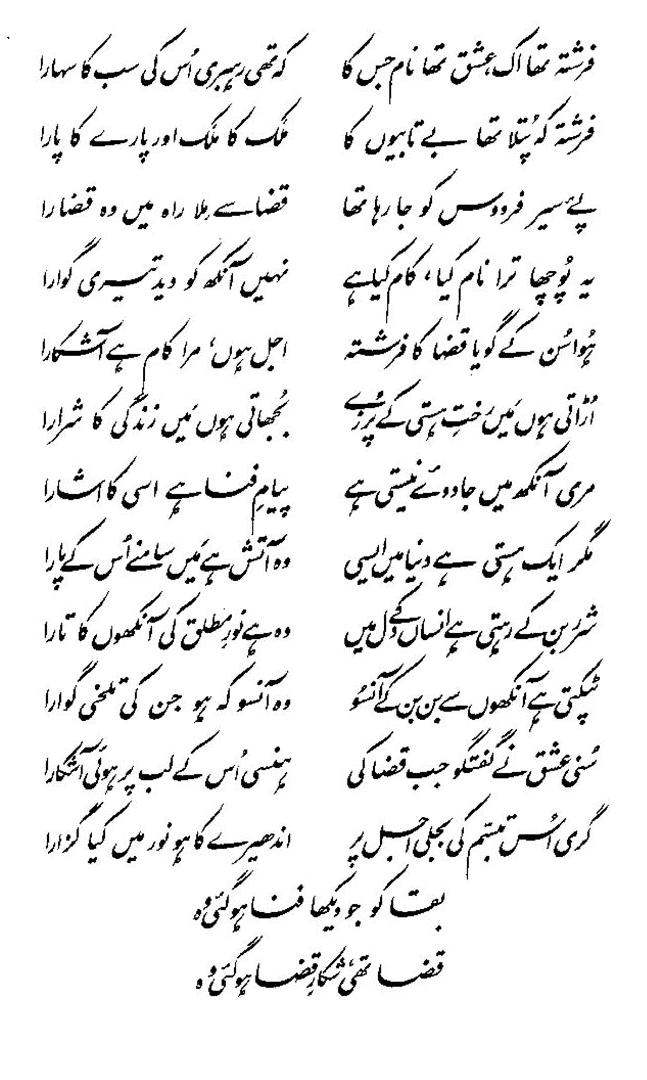 فرشتہ تھا اک، عشق تھا نام جس کا کہ تھی رہبری اُس کی سب کا سہارا
فرشتہ کہ پُتلا تھا بے تابیوں کا مَلَک کا مَلَک اور پارے کا پارا
پئے سیر فردوس کو جا رہا تھا قضا سے مِلا راہ میں وہ قضا را
یہ پُوچھا ترا نام کیا، کام کیا ہے نہیں آنکھ کو دید تیری گوارا
ہُوا سُن کے گویا قضا کا فرشتہ اجل ہوں، مرا کام ہے آشکارا
اُڑاتی ہوں مَیں رختِ ہستی کے پُرزے بُجھاتی ہوں مَیں زندگی کا شرارا
مری آنکھ میں جادوئے نیستی ہے پیامِ فنا ہے اسی کا اشارا
مگر ایک ہستی ہے دنیا میں ایسی وہ آتش ہے مَیں سامنے اُس کے پارا
شرر بن کے رہتی ہے انساں کے دل میں وہ ہے نورِ مطلق کی آنکھوں کا تارا
ٹپکتی ہے آنکھوں سے بن بن کے آنسُو وہ آنسو کہ ہو جن کی تلخی گوارا
سُنی عشق نے گفتگو جب قضا کی ہنسی اُس کے لب پر ہوئی آشکارا
گری اُس تبسّم کی بجلی اجل پر اندھیرے کا ہو نور میں کیا گزارا
بقا کو جو دیکھا فنا ہو گئی وہ
قضا تھی شکارِ قضا ہو گئی وہ